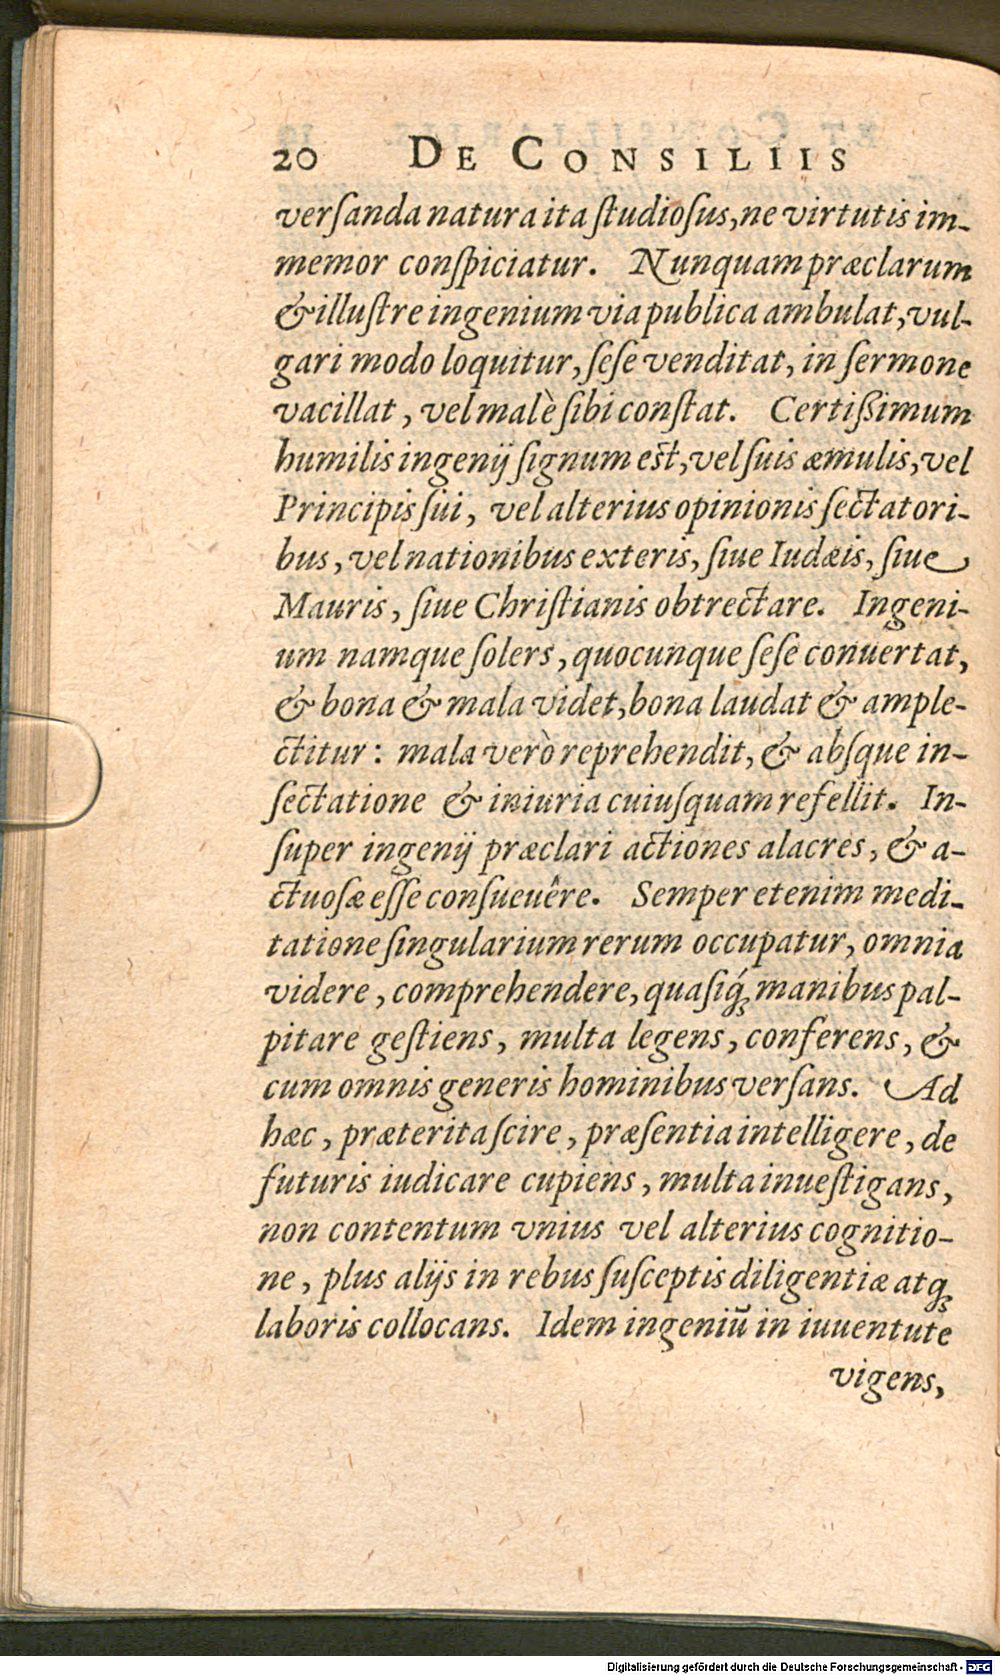 20 DE CONSILIIS
verſanda natura ita ſtudioſus, ne virtutis im-
memor conſpiciatur. Nunquam præclarum
& illuſtre ingenium via publica ambulat, vul-
gari modo loquitur, ſeſe venditat, in ſermone
vacillat, vel malè ſibi conſtat. Certißimum
humilis ingenij ſignum eſt, vel ſuis æmulis, vel
Principis ſui, vel alterius opinionis ſectatori-
bus, vel nationibus exteris, ſiue Iudæis, ſiue
Mauris, ſiue Chriſtianis obtrectare. Ingeni-
um namque ſolers, quocunque ſeſe conuertat,
& bona & mala videt, bona laudat & ample-
ctitur: mala verò reprehendit, & abſque in-
ſectatione & iniuria cuiuſquam refellit. In-
ſuper ingenij præclari actiones alacres, & a-
ctuoſæ eſſe conſueuêre. Semper etenim medi-
tatione ſingularium rerum occupatur, omnia
videre, comprehendere, quaſiq́ꝫ manibus pal-
pitare geſtiens, multa legens, conferens, &
cum omnis generis hominibus verſans. Ad
hæc, præterita ſcire, præſentia intelligere, de
futuris iudicare cupiens, multa inueſtigans,
non contentum vnius vel alterius cognitio-
ne, plus alijs in rebus ſuſceptis diligentiæ atqꝫ
laboris collocans. Idem ingeniū in iuuentute
vigens,
Digitalisierung gefördert durch die Deutsche Forschungsgemeinschaft - DFG